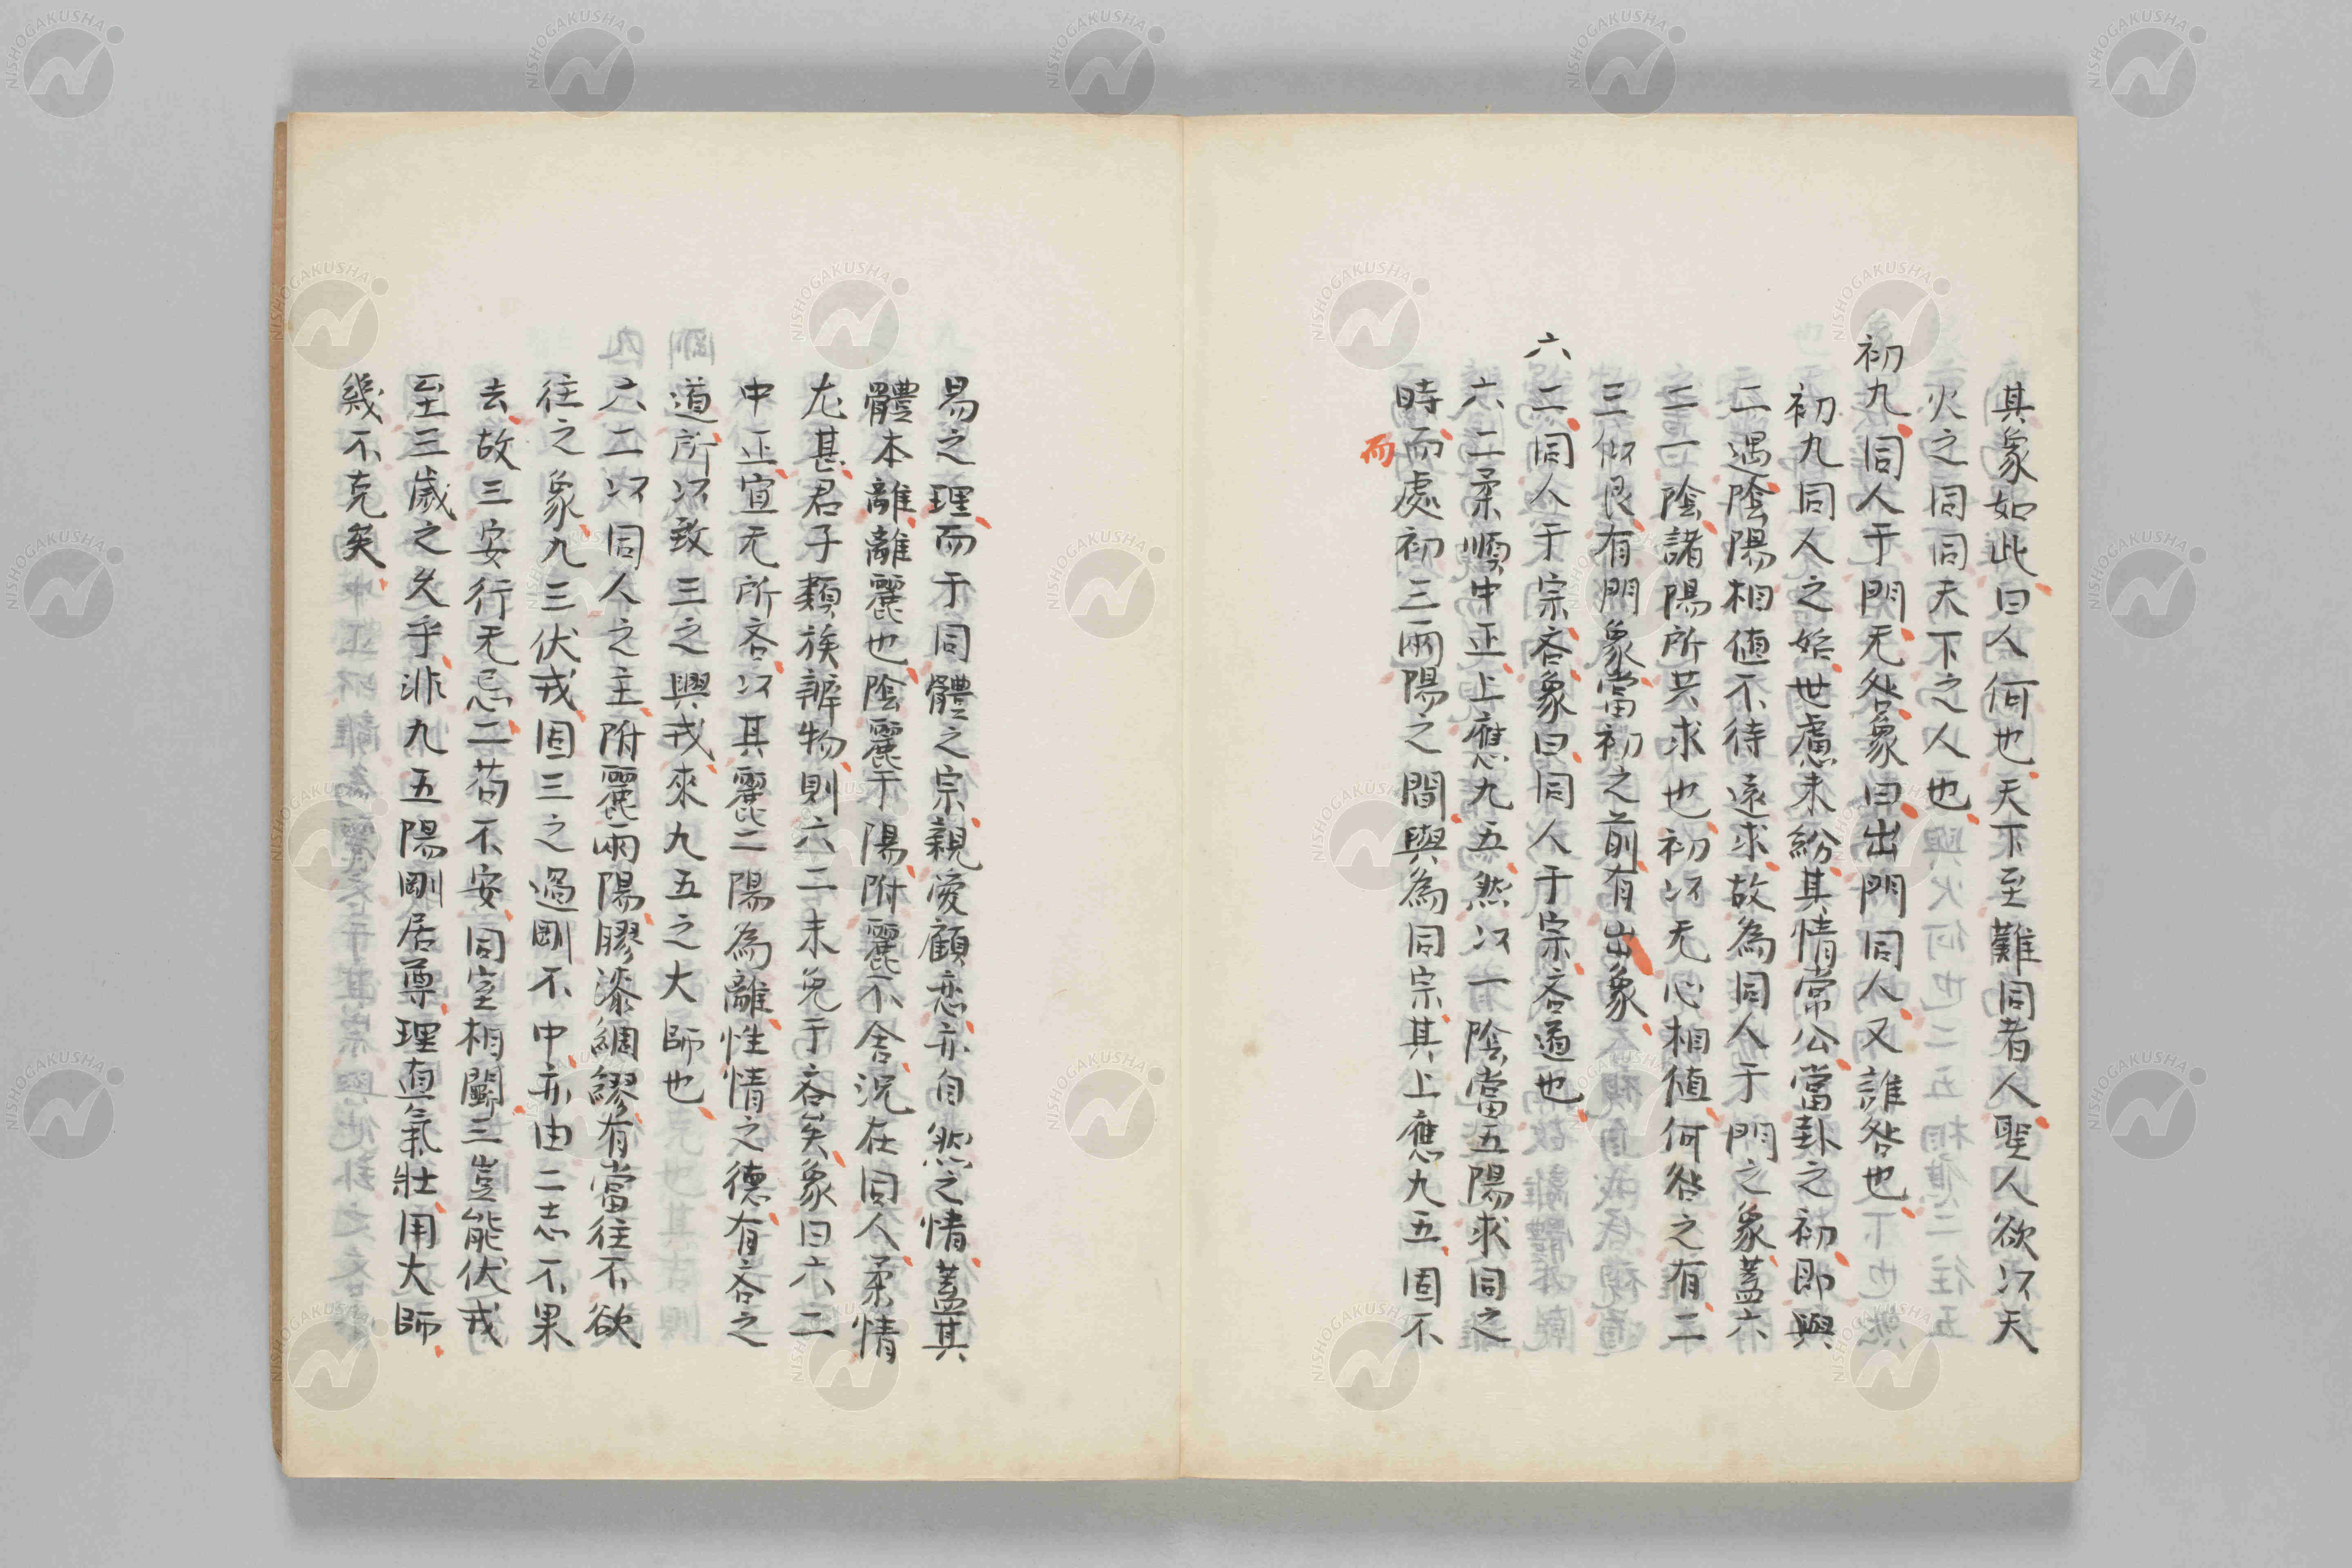 其象如此曰人何也天下至難同者人聖人欲以天
火之同同天下之人也
初九同人于門无咎象曰出門同人又誰咎也
初九同人之始世慮未紛其情常公當卦之初即與
二遇陰陽相値不待遠求故為同人于門之象蓋六
二一陰諸陽所共求也初以无心相値何咎之有二
三似艮有門象當初之前有出象
六二同人于宗吝象曰同人于宗吝道也
六二柔順中正上應九五然以一陰當五陽求同之
時而處初三兩陽之間與為同宗其上應九五固不
而
易之理而于同體之宗親愛顧恋亦自然之情蓋其
體本離離麗也陰麗于陽附麗不舍況在同人柔情
尤甚君子類族辨物則六二未免于吝矣象曰六二
中正宜无所吝以其麗二陽為離性情之德有吝之
道所以致三之興戎來九五之大師也
六二以同人之主附麗兩陽膠漆綢繆有當往不欲
往之象九三伏戎固三之過剛不中亦由二志不果
去故三安行无忌二苟不安同室相鬪三豈能伏戎
至三歲之久乎非九五陽剛居尊理直氣壯用大師
幾不克矣
NISHOGAKUSHA